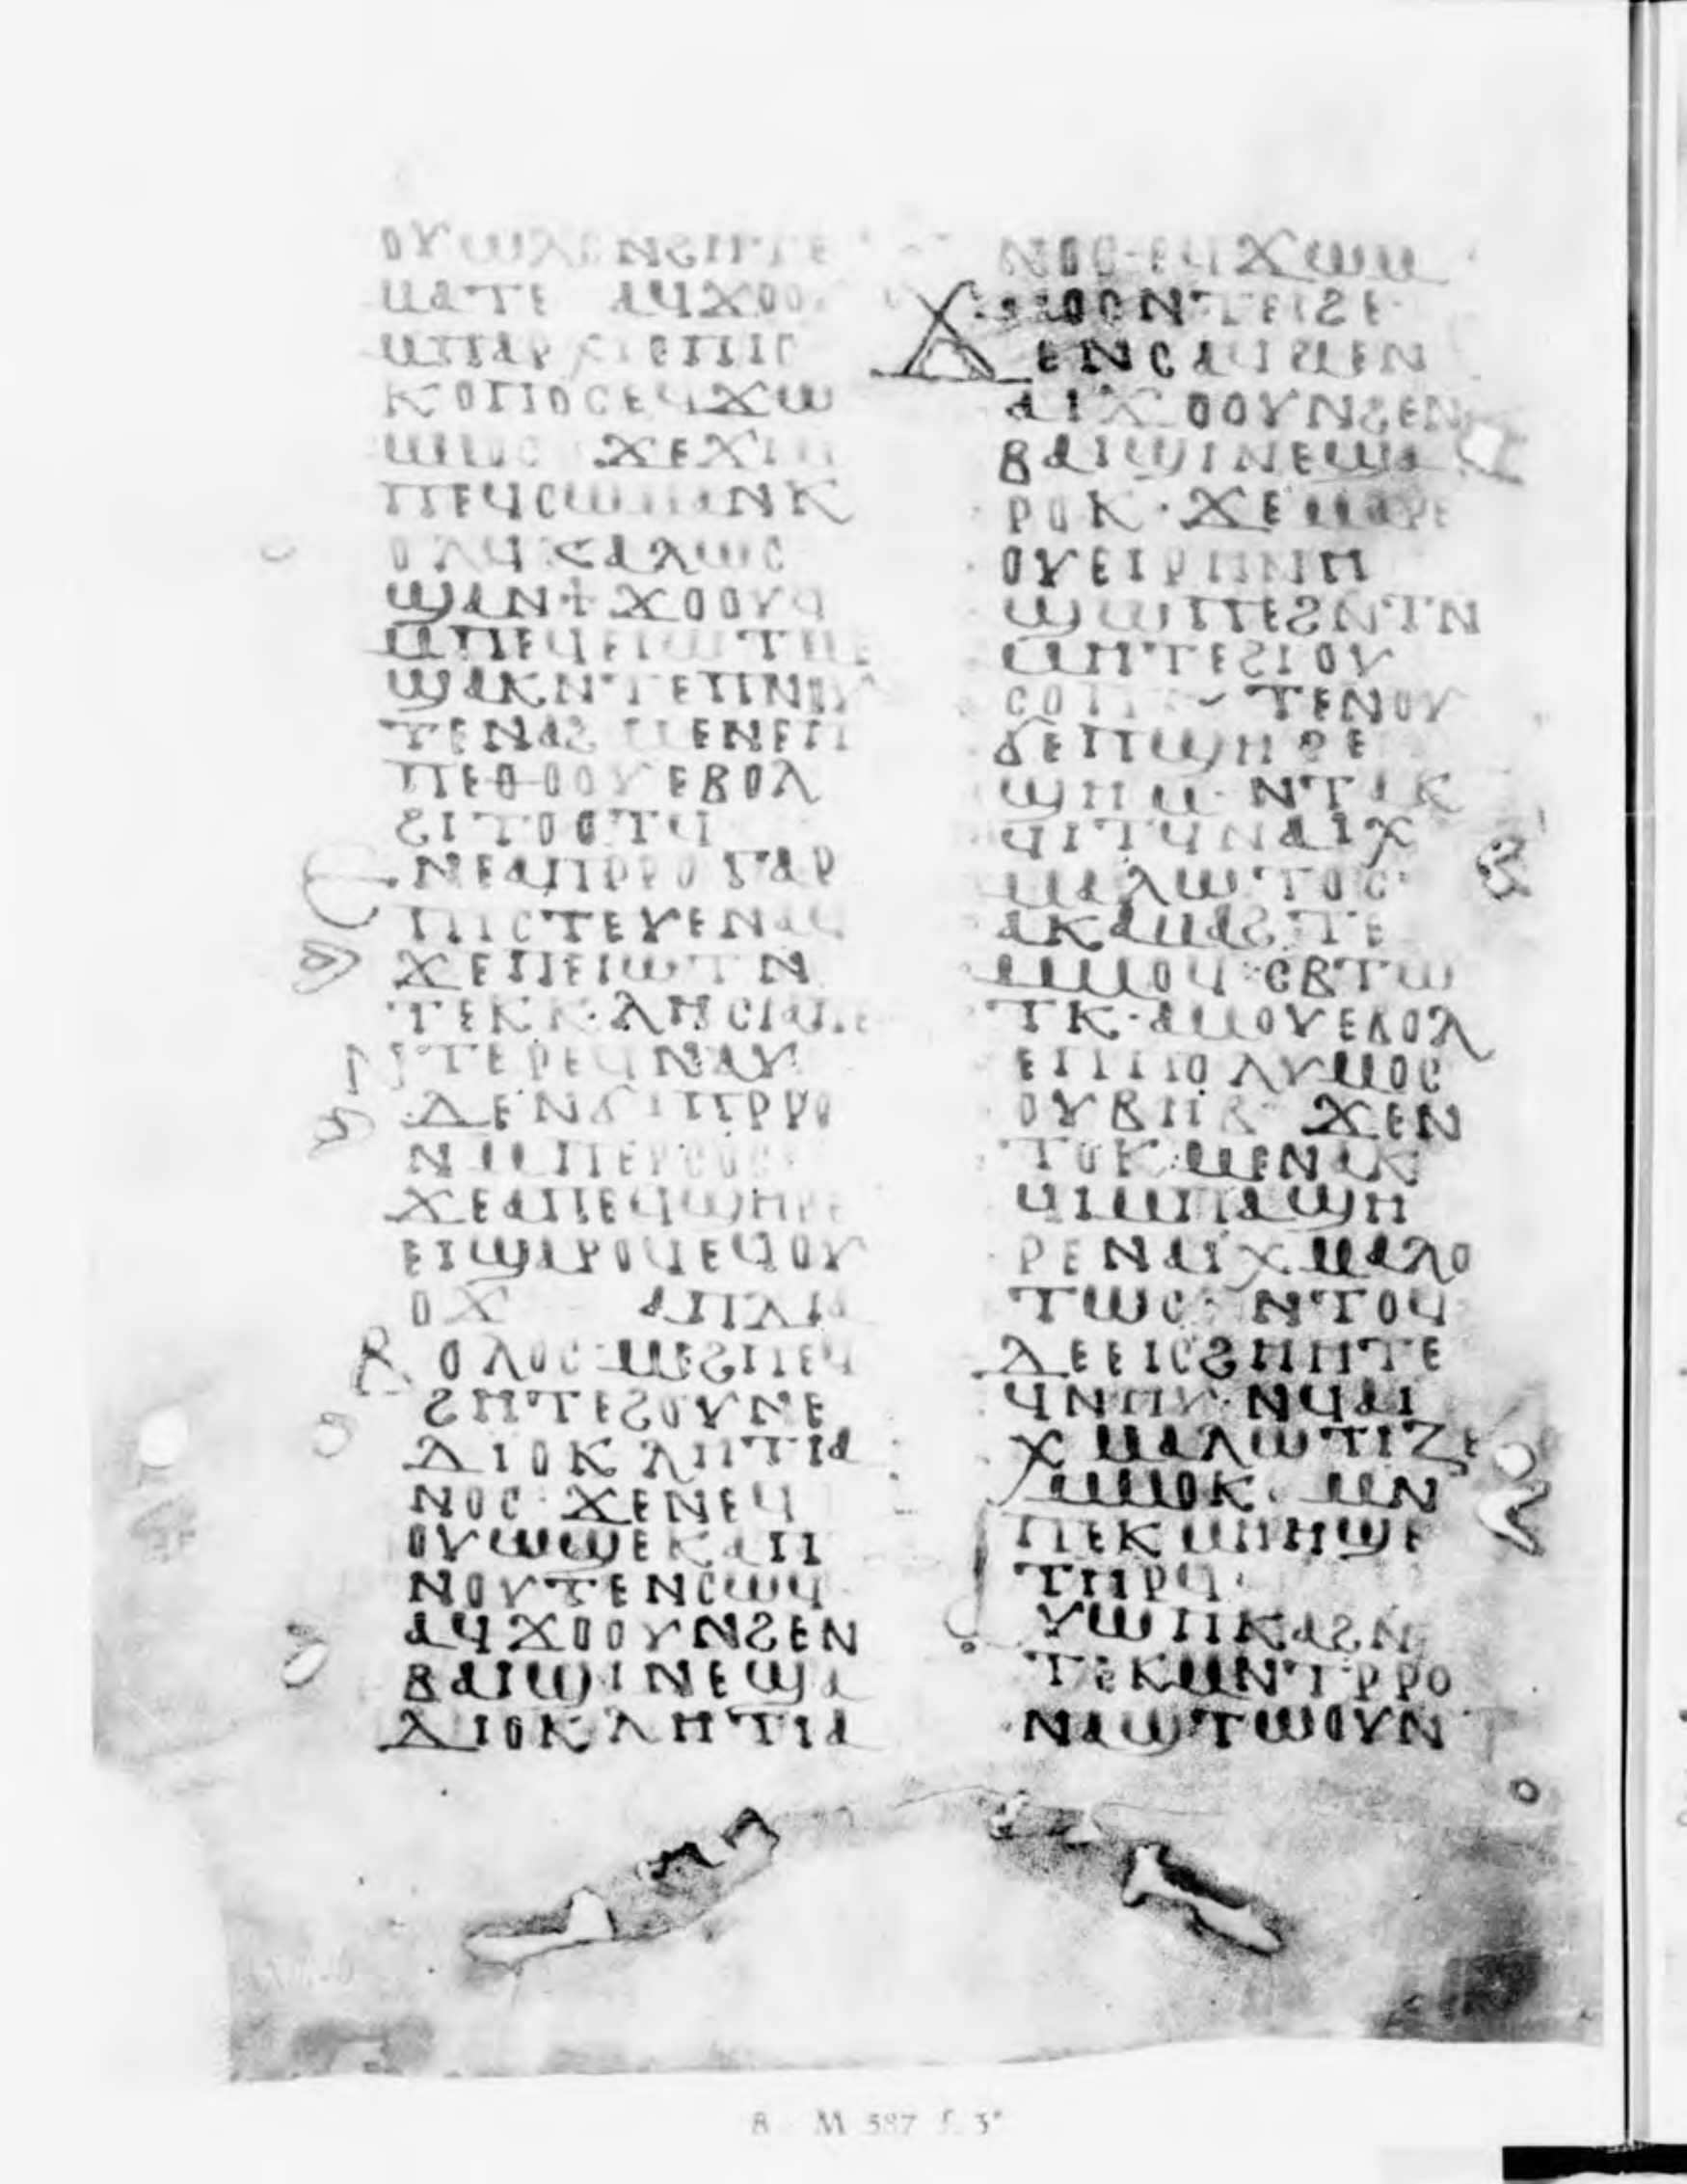 ⲟⲩⲱⲗⲥ ⲛϩⲏⲧ ⲉ
ⲙⲁⲧⲉ ⲁϥϫⲟⲟⲥ
ⲙⲡⲁⲣⲭⲓⲉⲡⲓⲥ
ⲕⲟⲡⲟⲥ ⲉϥϫⲱ
ⲙⲙⲟⲥ ϫⲉ ϫⲓ ⲙ
ⲡⲉϥⲥⲱⲙⲁ ⲛⲕ
ⲟⲗϥ ⲕⲁⲗⲱⲥ
ϣⲁⲛϯϫⲟⲟⲩϥ
ⲙⲡⲉϥⲉⲓⲱⲧ ⲙⲉ
ϣⲁⲕ ⲛⲧⲉ ⲡⲛⲟⲩ
ⲧⲉ ⲛⲁϩⲙⲉⲛ ⲉⲡ
ⲡⲉⲑⲟⲟⲩ ⲉⲃⲟⲗ
ϩⲓⲧⲟⲟⲧϥ
ⲛⲉⲁⲡⲣⲣⲟ ⲅⲁⲣ
ⲡⲓⲥⲧⲉⲩⲉ ⲛⲁϥ
ϫⲉ ⲡⲉⲓⲱⲧ ⲛ
ⲧⲉⲕⲕⲗⲏⲥⲓⲁ ⲡⲉ
ⲛⲧⲉⲣⲉϥⲛⲁⲩ
ⲇⲉ ⲛϭⲓ ⲡⲣⲣⲟ
ⲛⲙⲡⲉⲣⲥⲟⲥ
ϫⲉ ⲁⲡⲉϥϣⲏⲣⲉ
ⲉⲓ ϣⲁⲣⲟϥ ⲉϥⲟⲩ
ⲟϫ ⲁⲡⲇⲓⲁ
ⲃⲟⲗⲟⲥ ⲙⲉϩ ⲡⲉϥ
ϩⲏⲧ ⲉϩⲟⲩⲛ ⲉ
ⲇⲓⲟⲕⲗⲏⲧⲓⲁ
ⲛⲟⲥ ϫⲉ ⲛⲉϥ
ⲟⲩⲱϣ ⲉⲕⲁ ⲡ
ⲛⲟⲩⲧⲉ ⲛⲥⲱϥ
ⲁϥϫⲟⲟⲩ ⲛϩⲉⲛ
ϥⲁⲓϣⲓⲛⲉ ϣⲁ
ⲇⲓⲟⲕⲗⲏⲧⲓⲁ
ⲛⲟⲥ ⲉϥϫⲱ ⲙ
ⲙⲟⲥ ⲛⲧⲉⲓϩⲉ
ϫⲉ ⲛⲥⲁϥ ⲙⲉⲛ
ⲁⲓϫⲟⲟⲩ ⲛϩⲉⲛ
ⲃⲁⲓϣⲓⲛⲉ ϣⲁ
ⲣⲟⲕ ϫⲉ ⲙⲁⲣⲉ
ⲟⲩⲉⲓⲣⲏⲛⲏ
ϣⲱⲡⲉ ϩⲛ ⲧⲛ
ⲙⲏⲧⲉ ϩⲓ ⲟⲩ
ⲥⲟⲡ ⲧⲉⲛⲟⲩ
ϭⲉ ⲡϣⲏⲣⲉ
ϣⲏⲙ ⲛⲧⲁⲕ
ϥⲓⲧϥ ⲛⲁⲓⲭ
ⲙⲁⲗⲱⲧⲟⲥ
ⲁⲕⲁⲙⲁϩⲧⲉ
ⲙⲙⲟϥ ⲥⲃⲧⲱ
ⲧⲕ ⲁⲙⲟⲩ ⲉⲃⲟⲗ
ⲉⲡⲡⲟⲗⲩⲙⲟⲥ
ⲟⲩⲃⲏⲓ ϫⲉ ⲛ
ⲧⲟⲕ ⲙⲉⲛ ⲁⲕ
ϥⲓ ⲙⲡⲁϣⲏ
ⲣⲉ ⲛⲁⲓⲭⲙⲁⲗⲟ
ⲧⲱⲥ ⲛⲧⲟϥ
ⲇⲉ ⲉⲓⲥϩⲏⲏⲧⲉ
ϥⲛⲏⲩ ⲛϥⲁⲓ
ⲭⲙⲁⲗⲱⲧⲓⲍⲉ
ⲙⲙⲟⲕ ⲙⲛ
ⲡⲉⲕⲙⲏⲏϣⲉ
ⲧⲏⲣϥ
ⲁⲩⲱ ⲡⲕⲁϩ ⲛ
ⲧⲉⲕⲙⲛⲧⲣⲣⲟ
ⲛⲁϣⲧⲱⲟⲩⲛ
8 M 587 f. 3ᵛ